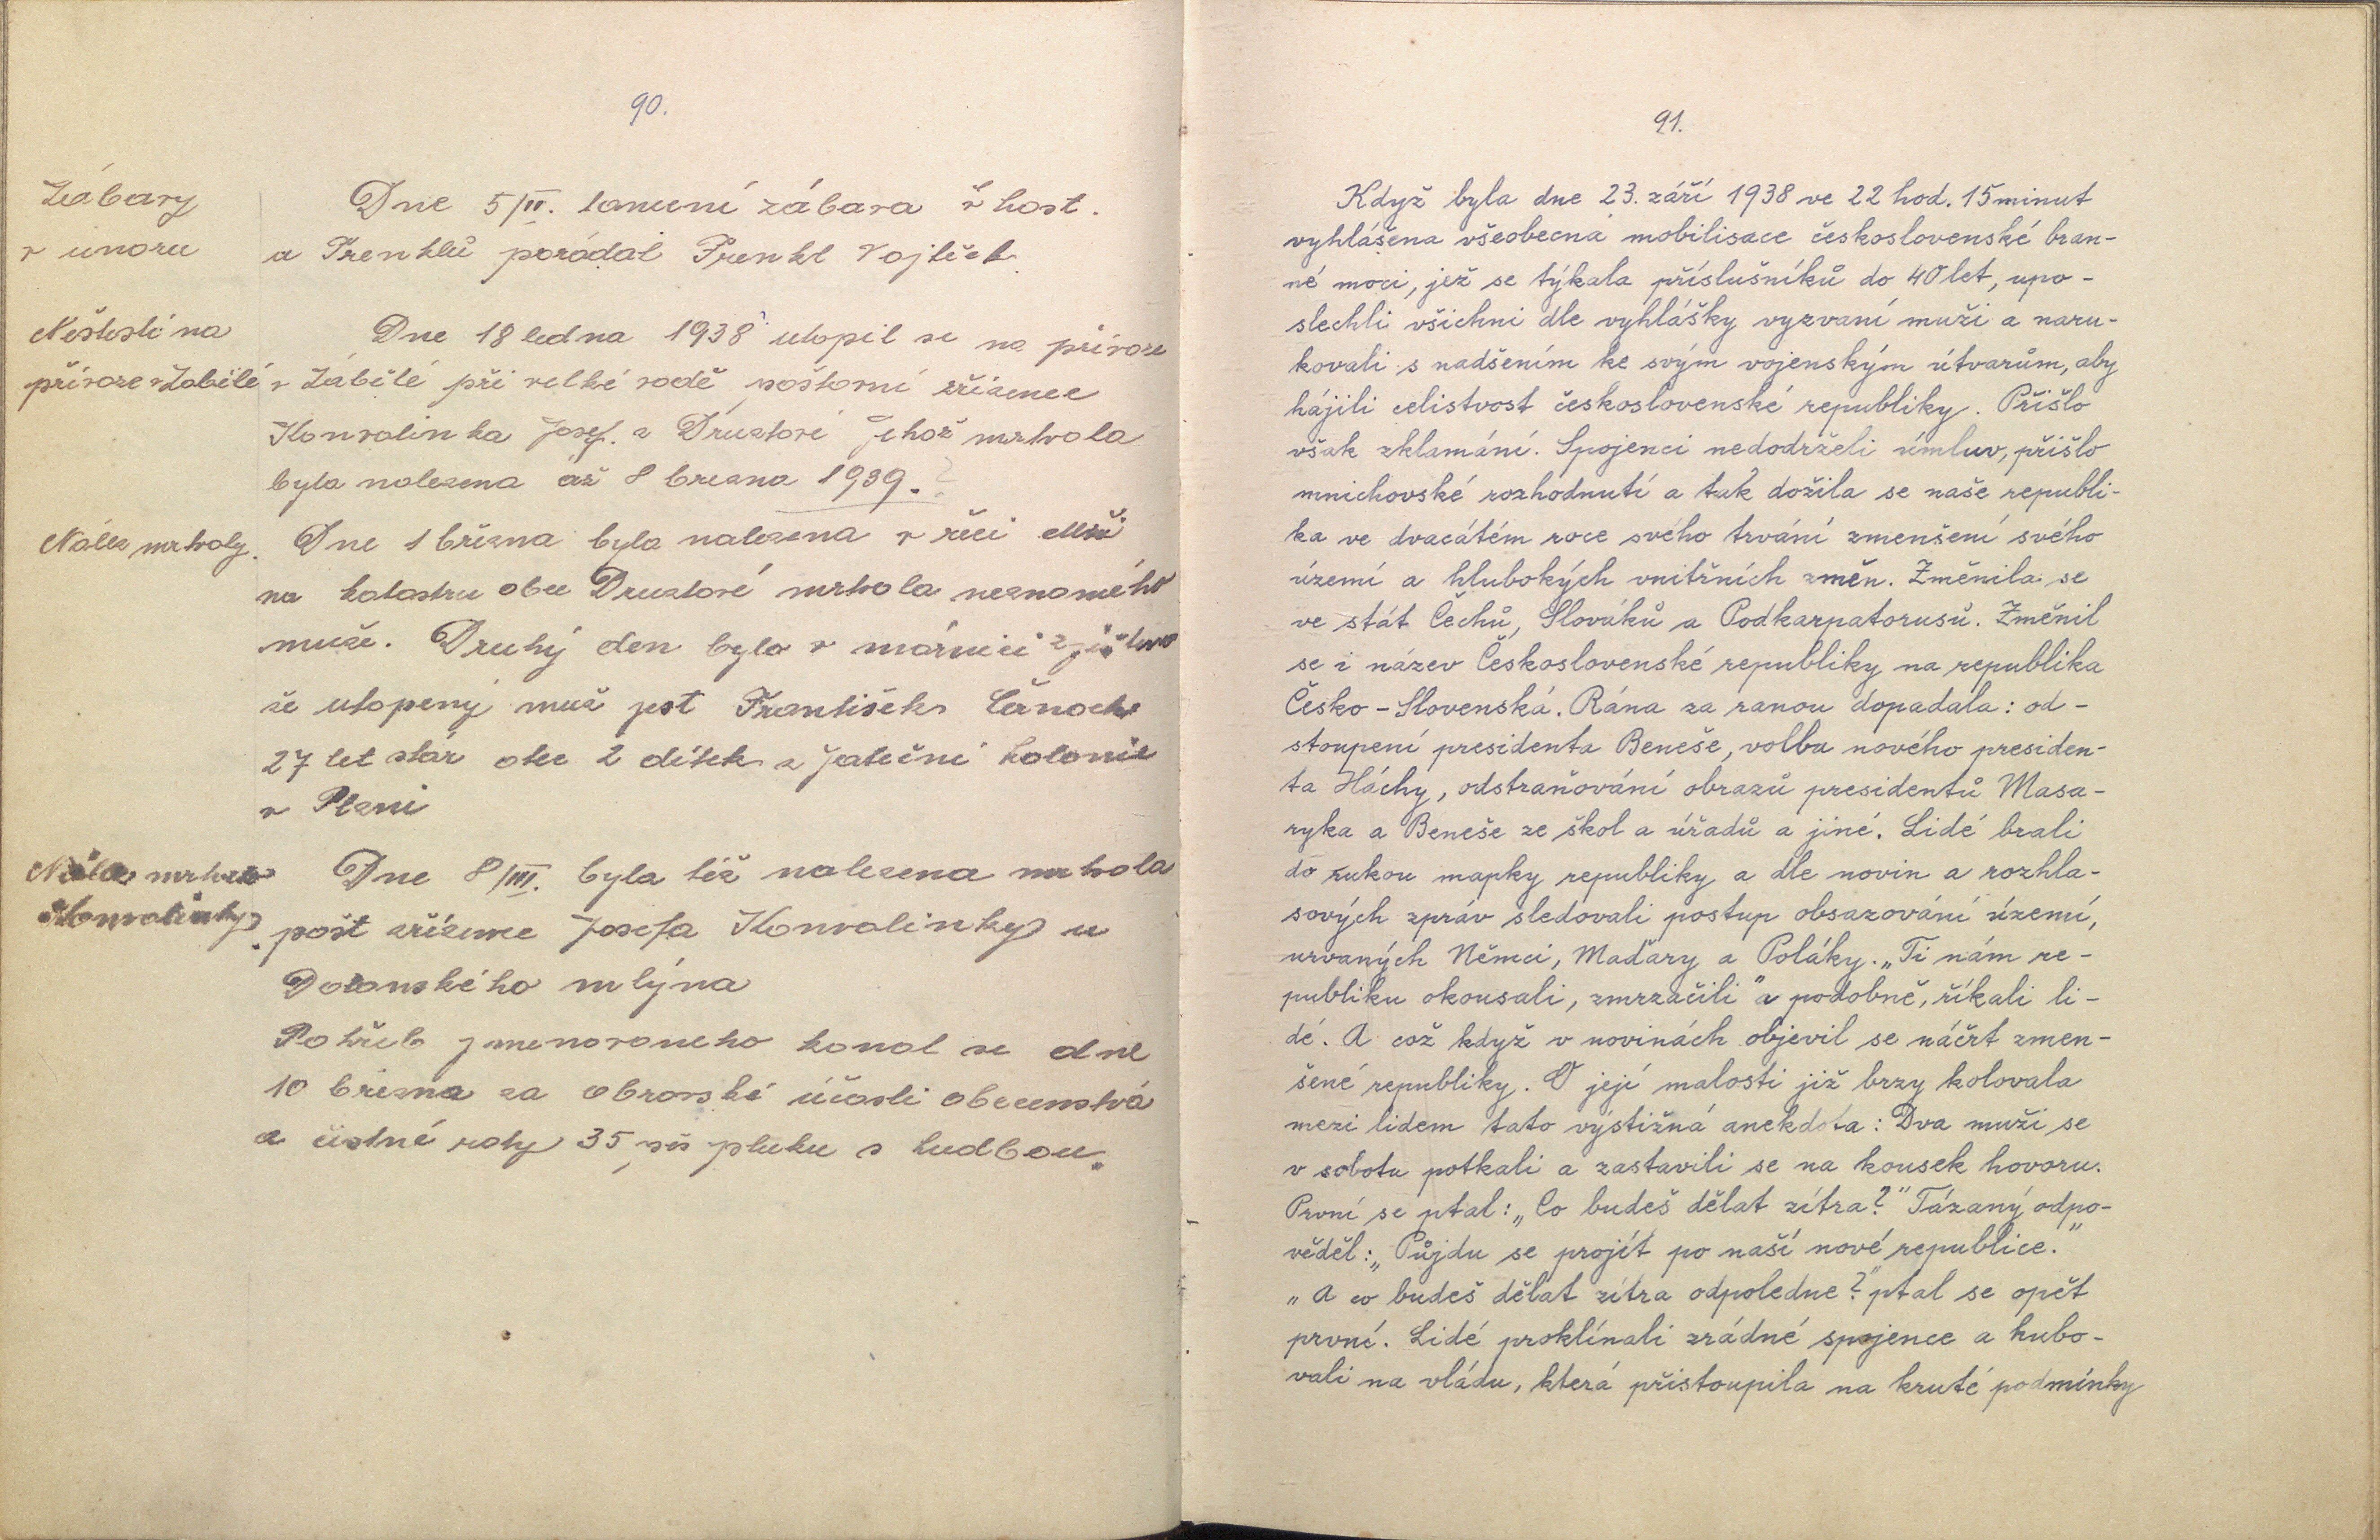 90.
Zábavy
v únoru
Dne 5/II. taneční zábava v host.
u Frenklů pořádal Frenkl Vojtěch
Neštěstí na
přívoze v Zábělé
Dne 18 ledna 1938 utopil se na přívoze
v Zábělé při velké vodě poštovní zřízenec
Konvalinka Josef. z Druztové jehož mrtvola
byla nalezena až 8 března 1939.?
Nález mrtvoly.
Dne 1 března byla nalezena v řeci Mži
na katastru obce Druztové mrtvola neznamého
muže. Druhý den bylo v márnici zjištěno
že utopený muž jest František Černoch
27 let stár otec 2 dítek z Jateční kolonie
v Plzni
Nález mrtvoly
Konvalinky
Dne 8/III. byla též nalezena mrtvola
pošt zřízence Josefa Konvalinky u
Dolanského mlýna
Pohřeb jmenovaneho konal se dne
10 března za obrovské účasti obecenstva
a čestné roty 35 pěš pluku s hudbou.
91.
Když byla dne 23. září 1938 ve 22 hod. 15 minut
vyhlášena všeobecna mobilisace československé bran-
né moci, jež se týkala příslušníků do 40 let, upo-
slechli všichni dle vyhlášky vyzvaní muži a naru-
kovali s nadšením ke svým vojenským útvarům, aby
hájili celistvost československé republiky. Přišlo
však zklamání. Spojenci nedodrželi úmluv, přišlo
mnichovské rozhodnutí a tak dožila se naše republi-
ka ve dvacátém roce svého trvání zmenšení svého
území a hlubokých vnitřních změn. Změnila se
ve stát Čechů, Slováků a Podkarpatorusů. Změnil
se i název Československé republiky na republika
Česko-Slovenská. Rána za ranou dopadala: od-
stoupení presidenta Beneše, volba nového presiden-
ta Háchy, odstraňování obrazů presidentů Masa-
ryka a Beneše ze škol a úřadů a jiné. Lidé brali
do rukou mapky republiky a dle novin a rozhla-
sových zpráv sledovali postup obsazování území,
urvaných Němci, Maďary a Poláky. „Ti nám re-
publiku okousali, zmrzačili" a podobně, říkali li-
dé. A což když v novinách objevil se náčrt zmen-
šené republiky. O její malosti již brzy kolovala
mezi lidem tato výstižná anekdota: Dva muži se
v sobotu potkali a zastavili se na kousek hovoru.
První se ptal: „Co budeš dělat zítra?" Tázaný odpo-
věděl: „Půjdu se projít po naší nové republice."
„A co budeš dělat zítra odpoledne?" ptal se opět
první. Lidé proklínali zrádné spojence a hubo-
vali na vládu, která přistoupila na kruté podmínky